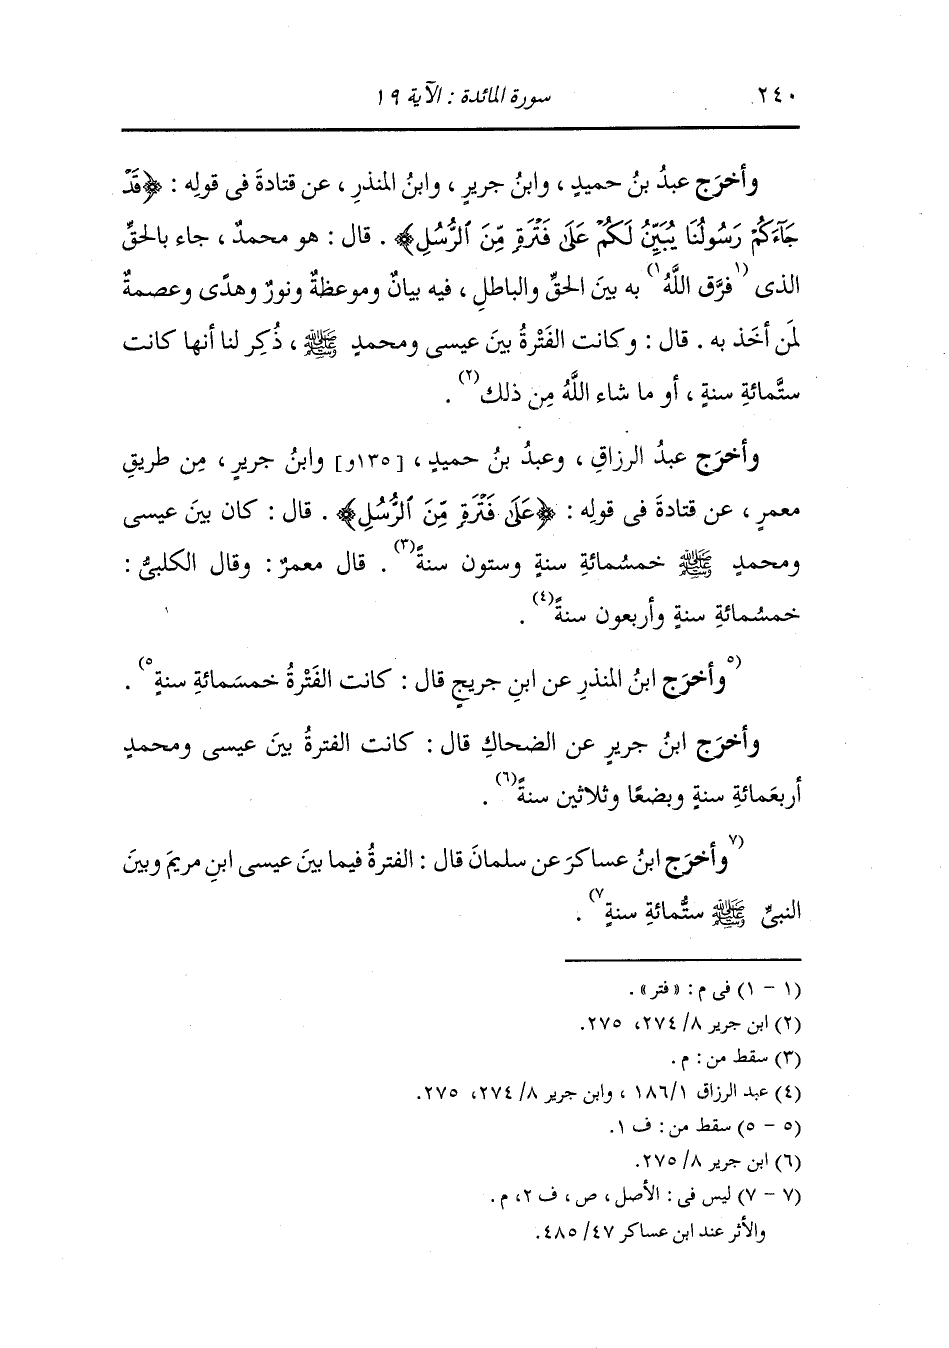 ٢٤٠ سورة المائدة : الآية ١٩
وأخرَج عبدُ بنُ حميدٍ ، وابنُ جريرٍ ، وابنُ المنذرِ ، عن قتادةَ فى قولِه : ﴿قَدْ
جَآءَكُمْ رَسُولُنَا يُبَيِّنُ لَكُمْ عَلَىٰ فَتْرَةٍ مِّنَ ٱلرُّسُلِ﴾ . قال : هو محمدٌ ، جاء بالحقِّ
الذى (١فرَّق اللَّهُ١) به بينَ الحقِّ والباطلِ ، فيه بيانٌ وموعظةٌ ونورٌ وهدًى وعصمةٌ
لمَن أخَذ به . قال : وكانت الفَتْرةُ بينَ عيسى ومحمدٍ ﷺ ، ذُكِر لنا أنها كانت
ستَّمائةِ سنةٍ ، أو ما شاء اللَّهُ مِن ذلك(٢) .
وأخرَج عبدُ الرزاقِ ، وعبدُ بنُ حميدٍ ، [١٣٥و] وابنُ جريرٍ ، مِن طريقِ
معمرٍ ، عن قتادةَ فى قولِه : ﴿عَلَىٰ فَتْرَةٍ مِّنَ ٱلرُّسُلِ﴾ . قال : كان بينَ عيسى
ومحمدٍ ﷺ خمسُمائةِ سنةٍ وستون سنةً(٣) . قال معمرٌ : وقال الكلبىُّ :
خمسُمائةِ سنةٍ وأربعون سنةً(٤) .
(٥وأخرَج ابنُ المنذرِ عن ابنِ جريجٍ قال : كانت الفَتْرةُ خمسَمائةِ سنةٍ٥) .
وأخرَج ابنُ جريرٍ عن الضحاكِ قال : كانت الفترةُ بينَ عيسى ومحمدٍ
أربعَمائةِ سنةٍ وبضعًا وثلاثين سنةً(٦) .
(٧وأخرَج ابنُ عساكرَ عن سلمانَ قال : الفترةُ فيما بينَ عيسى ابنِ مريمَ وبينَ
النبىِّ ﷺ ستُّمائةِ سنةٍ٧) .
(١ - ١) فى م : « فتر » .
(٢) ابن جرير ٨/ ٢٧٤، ٢٧٥.
(٣) سقط من : م .
(٤) عبد الرزاق ١/ ١٨٦ ، وابن جرير ٨/ ٢٧٤، ٢٧٥.
(٥ - ٥) سقط من : ف ١.
(٦) ابن جرير ٨/ ٢٧٥.
(٧ - ٧) ليس فى : الأصل ، ص ، ف ٢، م .
والأثر عند ابن عساكر ٤٧/ ٤٨٥.